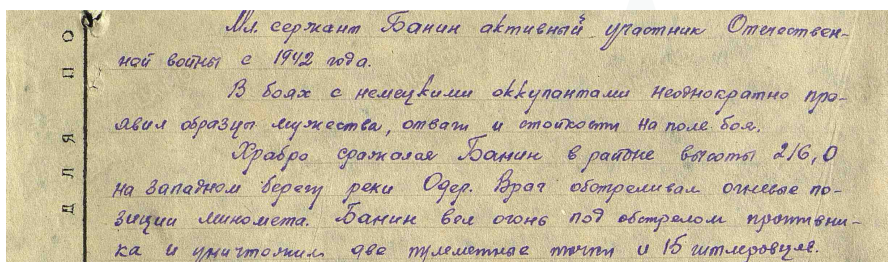 Мл. сержант Банин активный участник Отечествен-
ной войны с 1942 года.
В боях с немецкими оккупантами неоднократно про-
явил образцы мужества, отваги и стойкости на поле боя.
Храбро сражался Банин в районе высоты 216,0
на западном берегу реки Одер. Враг обстреливал огневые по-
зиции миномета. Банин вел огонь под обстрелом противни-
ка и уничтожил две пулеметные точки и 15 гитлеровцев.
ДЛЯ ПО